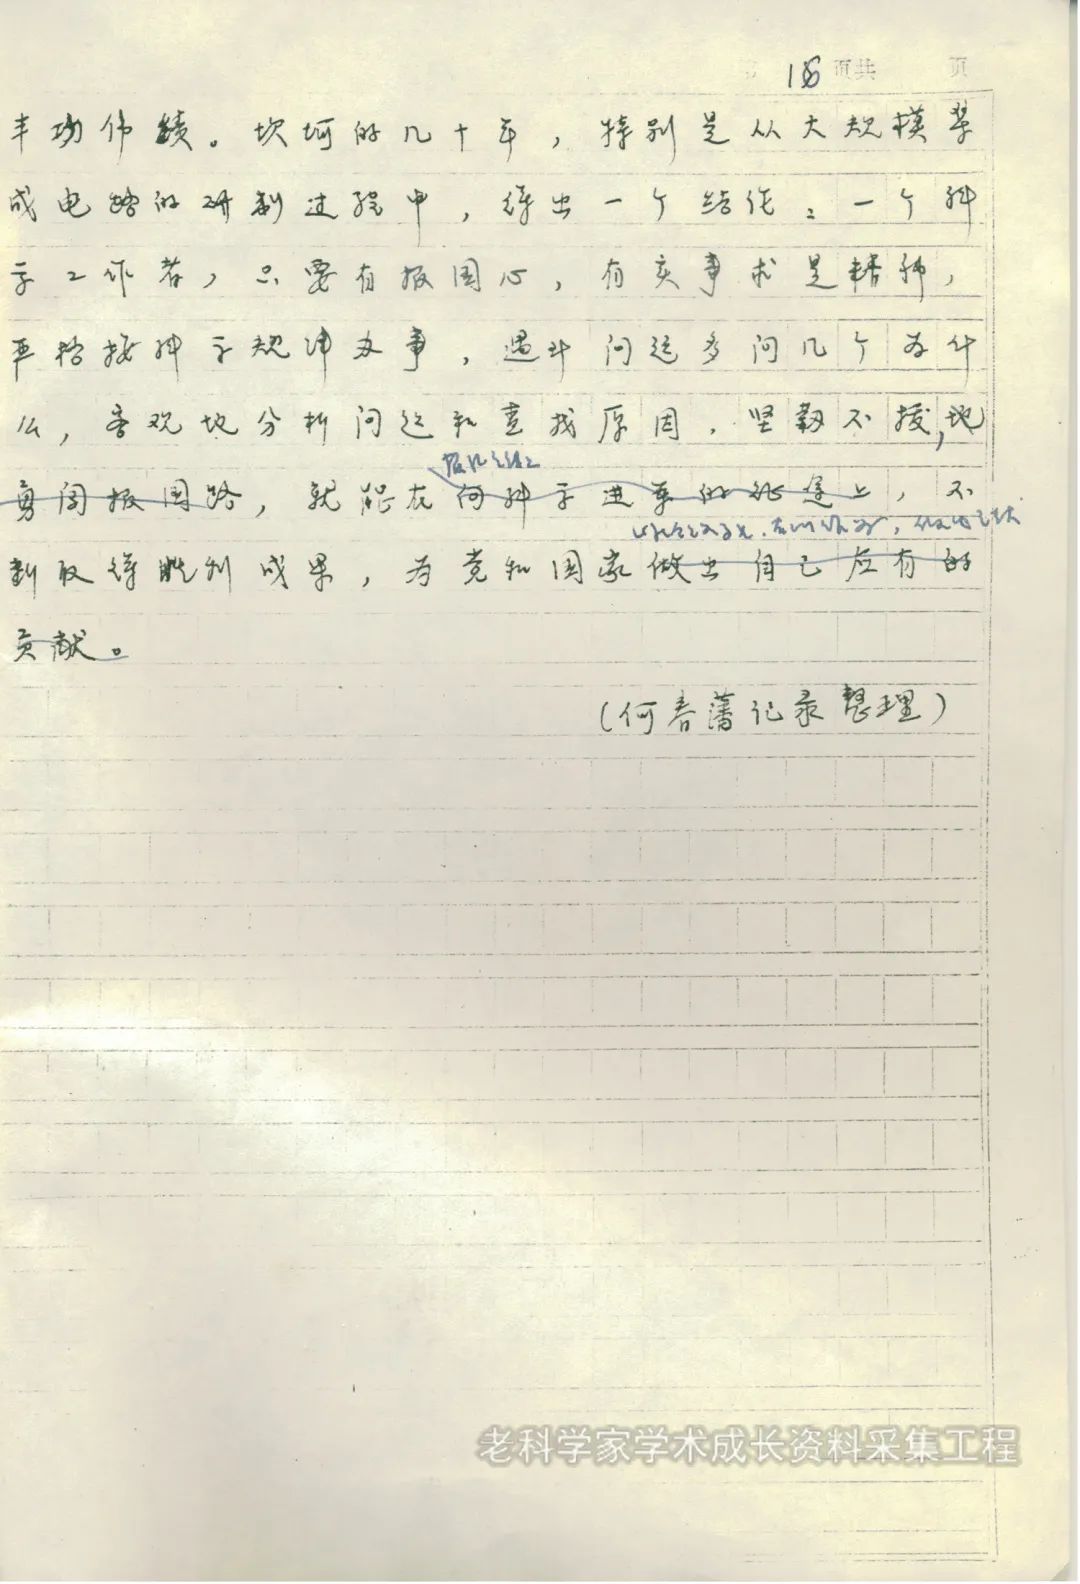 16 页共 页
丰功伟绩。坎坷的几十年，特别是从大规模集
成电路的研制过程中，得出一个结论：一个科
学工作者，只要有报国心，有实事求是精神，
严格按科学规律办事，遇到问题多问几个为什
么，客观地分析问题和查找原因，坚韧不拔，地
勇闯报国路，就能在向科学进军的征途上，不
断取得胜利成果，为党和国家做出自己应有的
贡献。
（何春藩记录整理）
老科学家学术成长资料采集工程